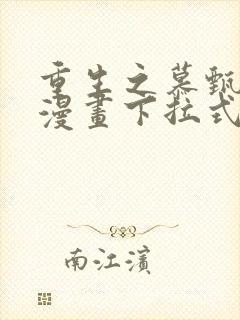 重生之慕甄
漫畫下拉式
南江濱